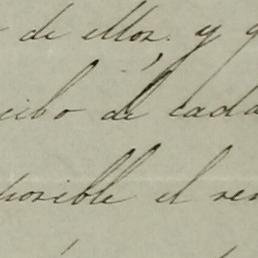 de ellos. y
cibo de cada
posible el